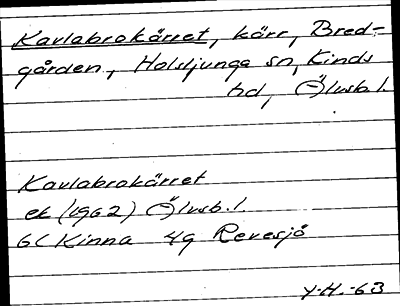 Kavlabrokärret, kärr, Bred-
gården, Holsljunga sn, Kinds
hd, Älvsb. l.
Kavlabrokärret
ek (1962) Älvsb. l.
6C Kinna 4g Revesjö
Y.H.-63